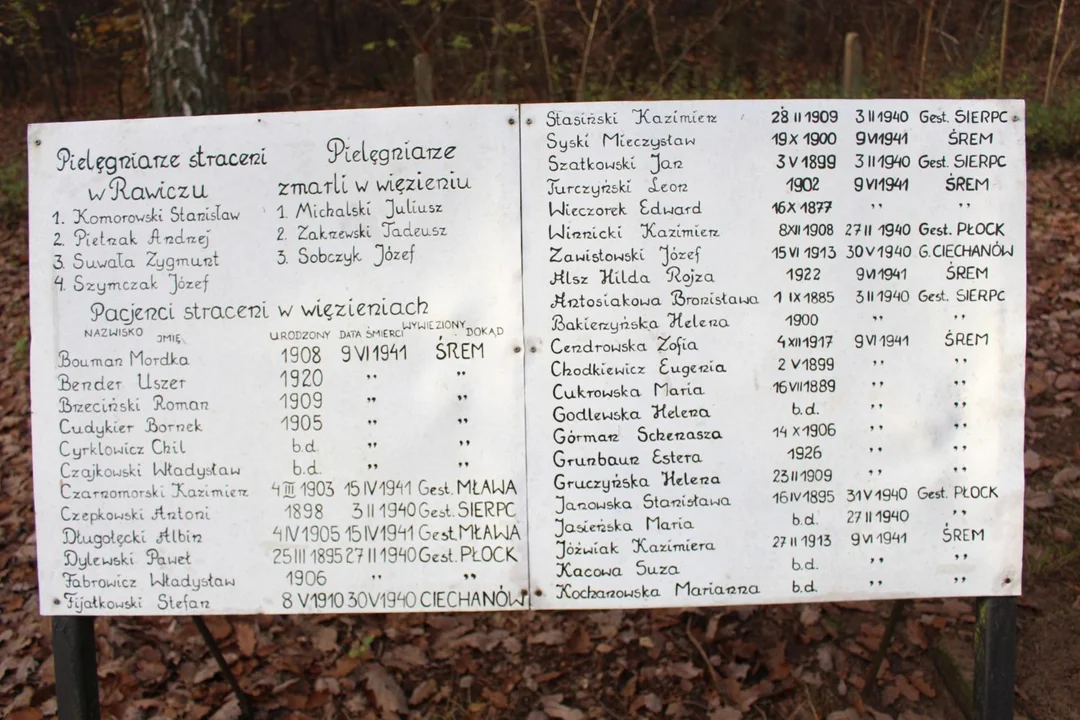 Pielęgniarze straceni
w Rawiczu
1. Komorowski Stanisław
2. Pietrzak Andrzej
3. Suwała Zygmunt
4. Szymczak Józef
Pielęgniarze
zmarli w więzieniu
1. Michalski Juliusz
2. Zakrzewski Tadeusz
3. Sobczyk Józef
Pacjenci straceni w więzieniach
NAZWISKO IMIĘ URODZONY DATA ŚMIERCI WYWIEZIONY DOKĄD
Bouman Mordka 1908 9 VI 1941 ŚREM
Bender Uszer 1920 " "
Brzeciński Roman 1909 " "
Cudykier Bornek 1905 " "
Cyrklowicz Chil b.d. " "
Czajkowski Władysław b.d. " "
Czarnomorski Kazimierz 4 III 1903 15 IV 1941 Gest. MŁAWA
Czepkowski Antoni 1898 3 II 1940 Gest. SIERPC
Długołęcki Albin 4 IV 1905 15 IV 1941 Gest. MŁAWA
Dylewski Paweł 25 III 1895 27 II 1940 Gest. PŁOCK
Fabrowicz Władysław 1906 " "
Fijałkowski Stefan 8 V 1910 30 V 1940 CIECHANÓW
Stasiński Kazimierz 28 II 1909 3 II 1940 Gest. SIERPC
Syski Mieczysław 19 X 1900 9 VI 1941 ŚREM
Szatkowski Jan 3 V 1899 3 II 1940 Gest. SIERPC
Turczyński Leon 1902 9 VI 1941 ŚREM
Wieczorek Edward 16 X 1877 " "
Winnicki Kazimierz 8 XII 1908 27 II 1940 Gest. PŁOCK
Zawistowski Józef 15 VI 1913 30 V 1940 G. CIECHANÓW
Alsz Hilda Rojza 1922 9 VI 1941 ŚREM
Antosiakowa Bronisława 1 IX 1885 3 II 1940 Gest. SIERPC
Bakierzyńska Helena 1900 " "
Cendrowska Zofia 4 XII 1917 9 VI 1941 ŚREM
Chodkiewicz Eugenia 2 V 1899 " "
Cukrowska Maria 16 VII 1889 " "
Godlewska Helena b.d. " "
Górman Schenasza 14 X 1906 " "
Grunbaun Estera 1926 " "
Gruczyńska Helena 23 II 1909 " "
Janowska Stanisława 16 IV 1895 31 V 1940 Gest. PŁOCK
Jasieńska Maria b.d. 27 II 1940 "
Jóźwiak Kazimiera 27 II 1913 9 VI 1941 ŚREM
Kacowa Suza b.d. " "
Kochanowska Marianna b.d. " "